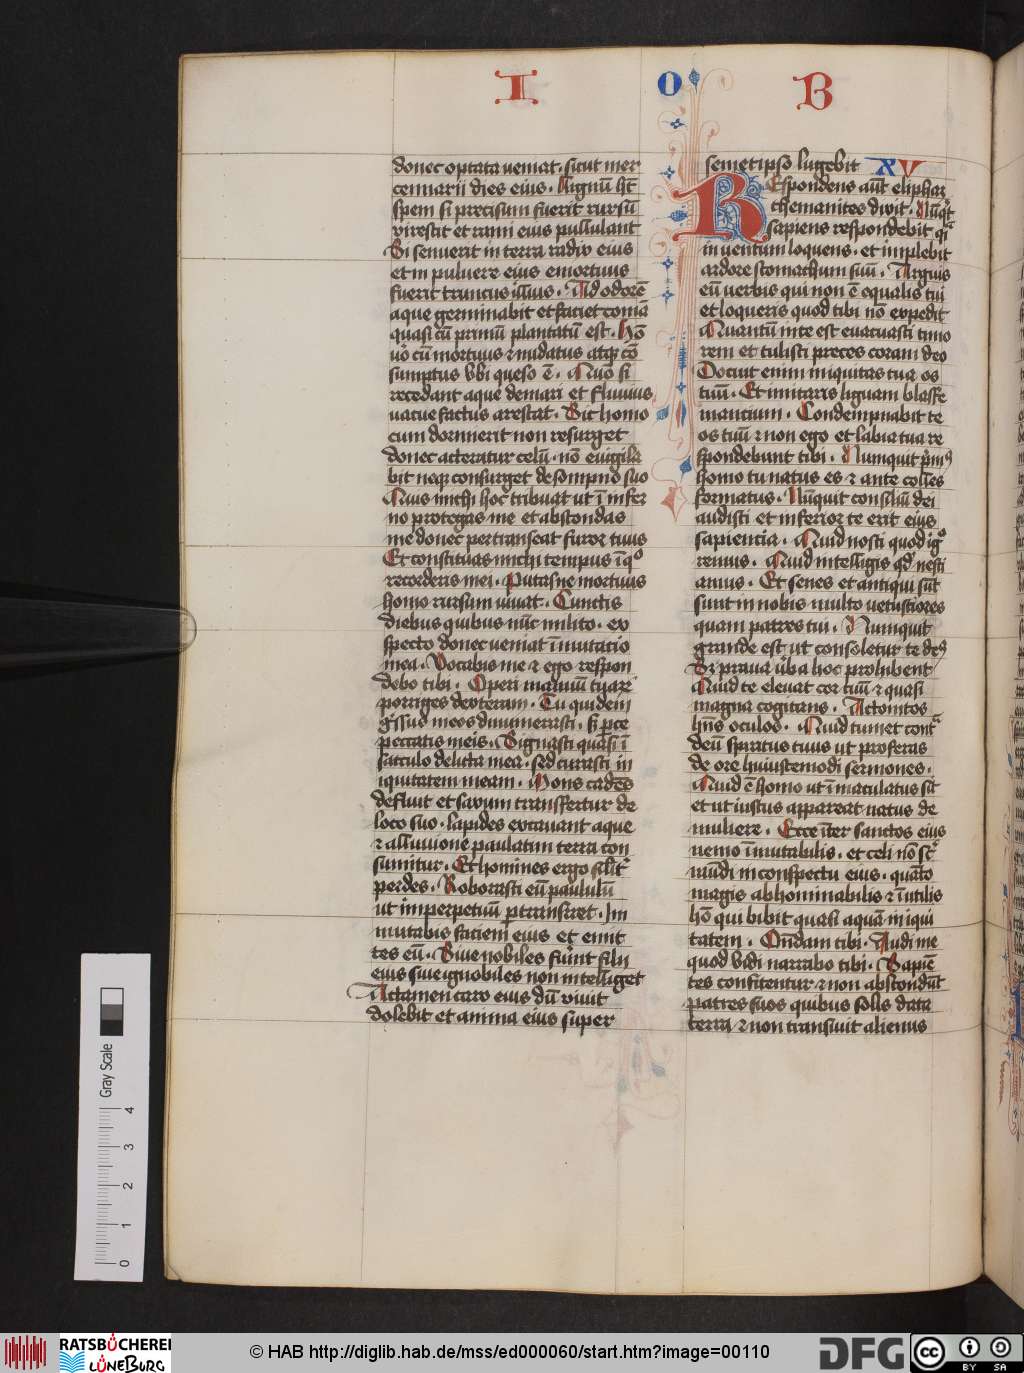 I O B
donec optata veniat. sicut mer
cennarii dies eius. Lignū hēt
spem si precisum fuerit rursū
virescit et rami eius pullulant
Si senuerit in terra radix eius
et in pulvere eius emortuus
fuerit truncus illius. Ad odorē
aque germinabit et faciet comā
quasi cū primū plantatū est. Hō
v̊o cū mortuus ⁊ nudatus atq̄ cō
sumptus vbi queso ē. Quō si
recedant aque de mari et fluuius
uacue factus arescat. Sic homo
cum dormierit non resurget
donec atteratur celū. nō euigila
bit neq̄ consurget de sompno suo
Quis michi hoc tribuat ut ī infer
no protegas me et abscondas
me donec pertranseat furor tuus
Et constituas michi tempus ī q°
recorderis mei. Putasne mortuus
homo rursum vivat. Cunctis
diebus quibus nūc milito. ex
specto donec veniat īmutatio
mea. Vocabis me ⁊ ego respon
debo tibi. Operi manuū tuarē
porriges dexteram. Tu quidem
gressus meos dinumerasti. sʒ pce
peccatis meis. Signasti quasi ī
sacculo delicta mea. sed curasti in
iquitatem meam. Mons cadēs
defluit et saxum transffertur de
loco suo. lapides excavant aque
⁊ alluuione paulatim terra con
sumitur. Et homines ergo silr̄
perdes. Roborasti eū paululū
ut imperpetuū ptransiret. Im
mutabis faciem eius et emit
tes eū. Sive nobiles fuīnt filij
eius siue ignobiles non intelliget
Actamen caro eius dū vivit
dolebit et anima eius super
semetipso lugebit XV
Respondens aut̄ eliphaz
themanites dixit. Nūqt
sapiens respondebit qsi
in uentum loquens. et implebit
ardore stomachum suū. Arguis
eū uerbis qui non ē equalis tui
et loqueris quod tibi nō expedit
Quantū in te est evacuasti timo
rem et tulisti preces coram deo
Docuit enim iniquitas tua os
tuū. Et imitaris liguam blasfe
mantium. Condempnabit te
os tuū ⁊ non ego et labia tua re
spondebunt tibi. Numquit pīmꝰ
homo tu natus es ⁊ ante colles
formatus. Nūquit consiliū dei
audisti et inferior te erit eius
sapientia. Quid nosti quod ig°
remus. Quid intelligis qd̄ nesci
amus. Et senes et antiqui sūt
sunt in nobis multo vetustiores
quam patres tui. Numquit
grande est ut consoletur te deꝰ
Sʒ praua v̄ba hoc prohibent
Quid te elevat cor tuū ⁊ quasi
magna cogitans. Actonitos
hn̄s oculos. Quid tumet conta
deū spiratus tuus ut proferas
de ore huiuscemodi sermones.
Quid ē homo ut īmaculatus sit
et ut iustus appareat natus de
muliere. Ecce īter sanctos eius
nemo īmutabilis. et celi nō st̄
mūdi in conspectu eius. quāto
magis abhominabilis ⁊ īutilis
hō qui bibit quasi aquā in iqui
tatem. Ondam tibi. Audi me
quod vidi narrabo tibi. Sapiē
tes confitentur ⁊ non abscondūt
patres suos quibus solis data
terra ⁊ non transiuit alienus
Gray Scale
0 1 2 3 4
RATSBÜCHEREI
LÜNEBURG
© HAB http://diglib.hab.de/mss/ed000060/start.htm?image=00110
DFG
cc BY SA